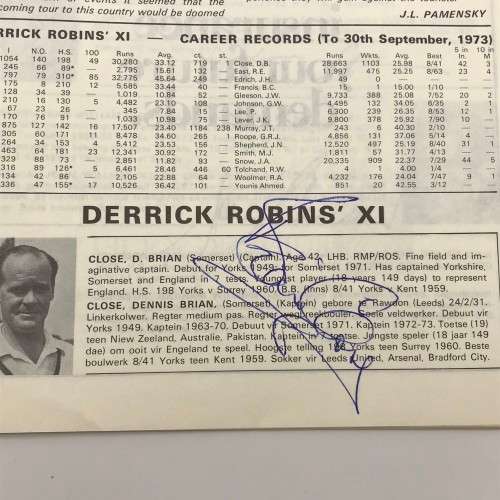 coming tour to this country would be doomed
J.L. PAMENSKY
RRICK ROBINS' XI — CAREER RECORDS (To 30th September, 1973)
I N.O. H.S. 100 Runs Avg. ct. st. Runs Wkts. Avg. Best 5 in I 10 in M
1054 140 198 49 30,280 33.12 719 1 Close, D.B. 28,663 1103 25.98 8/41 42
245 66 89* — 2,795 15.61 132 — East, R.E. 11,997 475 25.25 8/63 23 4
797 79 310* 85 32,775 45.64 249 — Edrich, J.H. 49 0 — — — —
175 8 210 12 5,585 33.44 40 — Francis, B.C. 15 1 15.00 1/10 — —
128 34 39 — 1,019 10.84 52 — Gleeson, J.W. 9,733 388 25.08 7/52 20 2
210 16 130 5 4,482 23.10 108 — Johnson, G.W. 4,495 132 34.05 6/35 2 —
67 23 26 — 345 7.84 15 — Lee, P. 6,300 239 26.35 8/53 12 1
170 76 91 — 1,033 10.98 75 — Lever, J.K. 9,800 378 25.92 7/90 10 —
875 127 142 16 17,507 23.40 1184 238 Murray, J.T. 243 6 40.30 2/10 — —
305 60 171 11 8,478 34.60 265 1 Roope, G.R.J. 4,856 131 37.06 5/14 4 —
264 34 153 4 5,412 23.53 156 — Shepherd, J.N. 12,520 497 25.19 8/40 31 1
463 64 181 23 12,341 30.92 172 — Smith, M.J. 1,811 57 31.77 4/13 — —
329 88 73 — 2,851 11.82 93 — Snow, J.A. 20,335 909 22.37 7/29 44
316 89 126* 5 6,461 28.46 446 60 Tolchard, R.W. 4 1 4.00 1/4 — —
134 42 86 — 2,105 22.88 64 — Woolmer, R.A. 4,232 176 24.04 7/47 9 1
336 47 155* 17 10,526 36.42 101 — Younis Ahmed 851 20 42.55 3/12 — —
DERRICK ROBINS' XI
CLOSE, D. BRIAN (Somerset) (Captain). Age 42. LHB. RMP/ROS. Fine field and im-
aginative captain. Debut for Yorks 1949; for Somerset 1971. Has captained Yorkshire,
Somerset and England in 7 tests. Youngest player (18 years 149 days) to represent
England. H.S. 198 Yorks v Surrey 1960. B.B. (Inns) 8/41 Yorks v Kent 1959.
CLOSE, DENNIS BRIAN, (Somerset) (Kaptein) gebore in Rawdon (Leeds) 24/2/31.
Linkerkolwer. Regter medium pas. Regter wegbreekbouler. Goeie veldwerker. Debuut vir
Yorks 1949. Kaptein 1963-70. Debuut vir Somerset 1971. Kaptein 1972-73. Toetse (19)
teen Niew Zeeland, Australie, Pakistan. Kaptein in 7 toetse. Jongste speler (18 jaar 149
dae) om ooit vir Engeland te speel. Hoogste telling 198 Yorks teen Surrey 1960. Beste
boulwerk 8/41 Yorks teen Kent 1959. Sokker vir Leeds United, Arsenal, Bradford City.